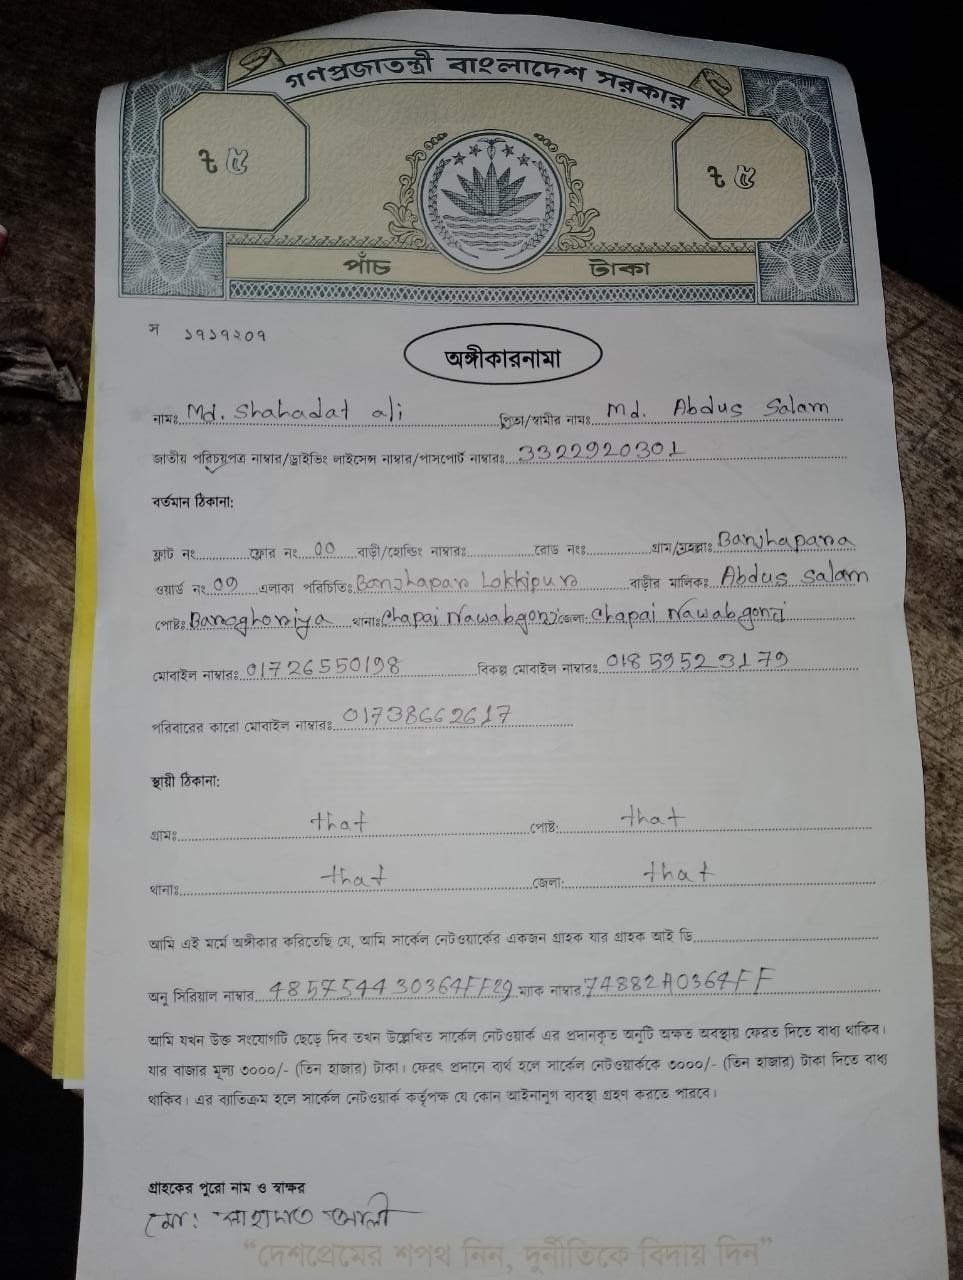 গণপ্রজাতন্ত্রী বাংলাদেশ সরকার
৳ ৫ ৳ ৫
পাঁচ টাকা
স ১৭১৭২০৭
অঙ্গীকারনামা
নামঃ Md. Shahadat ali পিতা/স্বামীর নামঃ Md. Abdus Salam
জাতীয় পরিচয়পত্র নাম্বার/ড্রাইভিং লাইসেন্স নাম্বার/পাসপোর্ট নাম্বারঃ 3322920301
বর্তমান ঠিকানা:
ফ্লাট নং ফ্লোর নং 00 বাড়ী/হোল্ডিং নাম্বারঃ রোড নংঃ গ্রাম/মহল্লাঃ Banshapara
ওয়ার্ড নং 09 এলাকা পরিচিতিঃ Banshapar Lokkipur বাড়ীর মালিকঃ Abdus Salam
পোষ্টঃ Baroghoriya থানাঃ Chapai Nawabgonj জেলা: Chapai Nawabgonj
মোবাইল নাম্বারঃ 01726550198 বিকল্প মোবাইল নাম্বারঃ 01859523179
পরিবারের কারো মোবাইল নাম্বারঃ 01738662617
স্থায়ী ঠিকানা:
গ্রামঃ that পোষ্ট: that
থানাঃ that জেলা: that
আমি এই মর্মে অঙ্গীকার করিতেছি যে, আমি সার্কেল নেটওয়ার্কের একজন গ্রাহক যার গ্রাহক আই ডি
অনু সিরিয়াল নাম্বার 485754430364FF29 ম্যাক নাম্বার 74882A0364FF
আমি যখন উক্ত সংযোগটি ছেড়ে দিব তখন উল্লেখিত সার্কেল নেটওয়ার্ক এর প্রদানকৃত অনুটি অক্ষত অবস্থায় ফেরত দিতে বাধ্য থাকিব।
যার বাজার মূল্য ৩০০০/- (তিন হাজার) টাকা। ফেরৎ প্রদানে ব্যর্থ হলে সার্কেল নেটওয়ার্ককে ৩০০০/- (তিন হাজার) টাকা দিতে বাধ্য
থাকিব। এর ব্যাতিক্রম হলে সার্কেল নেটওয়ার্ক কর্তৃপক্ষ যে কোন আইনানুগ ব্যবস্থা গ্রহণ করতে পারবে।
গ্রাহকের পুরো নাম ও স্বাক্ষর
মো: সাহাদাত আলী
“দেশপ্রেমের শপথ নিন, দুর্নীতিকে বিদায় দিন”